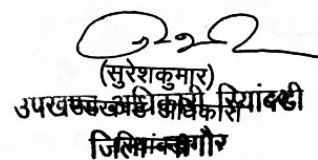 (सुरेशकुमार)
उपखण्ड अधिकारी रियांबडी
जिला नागौर